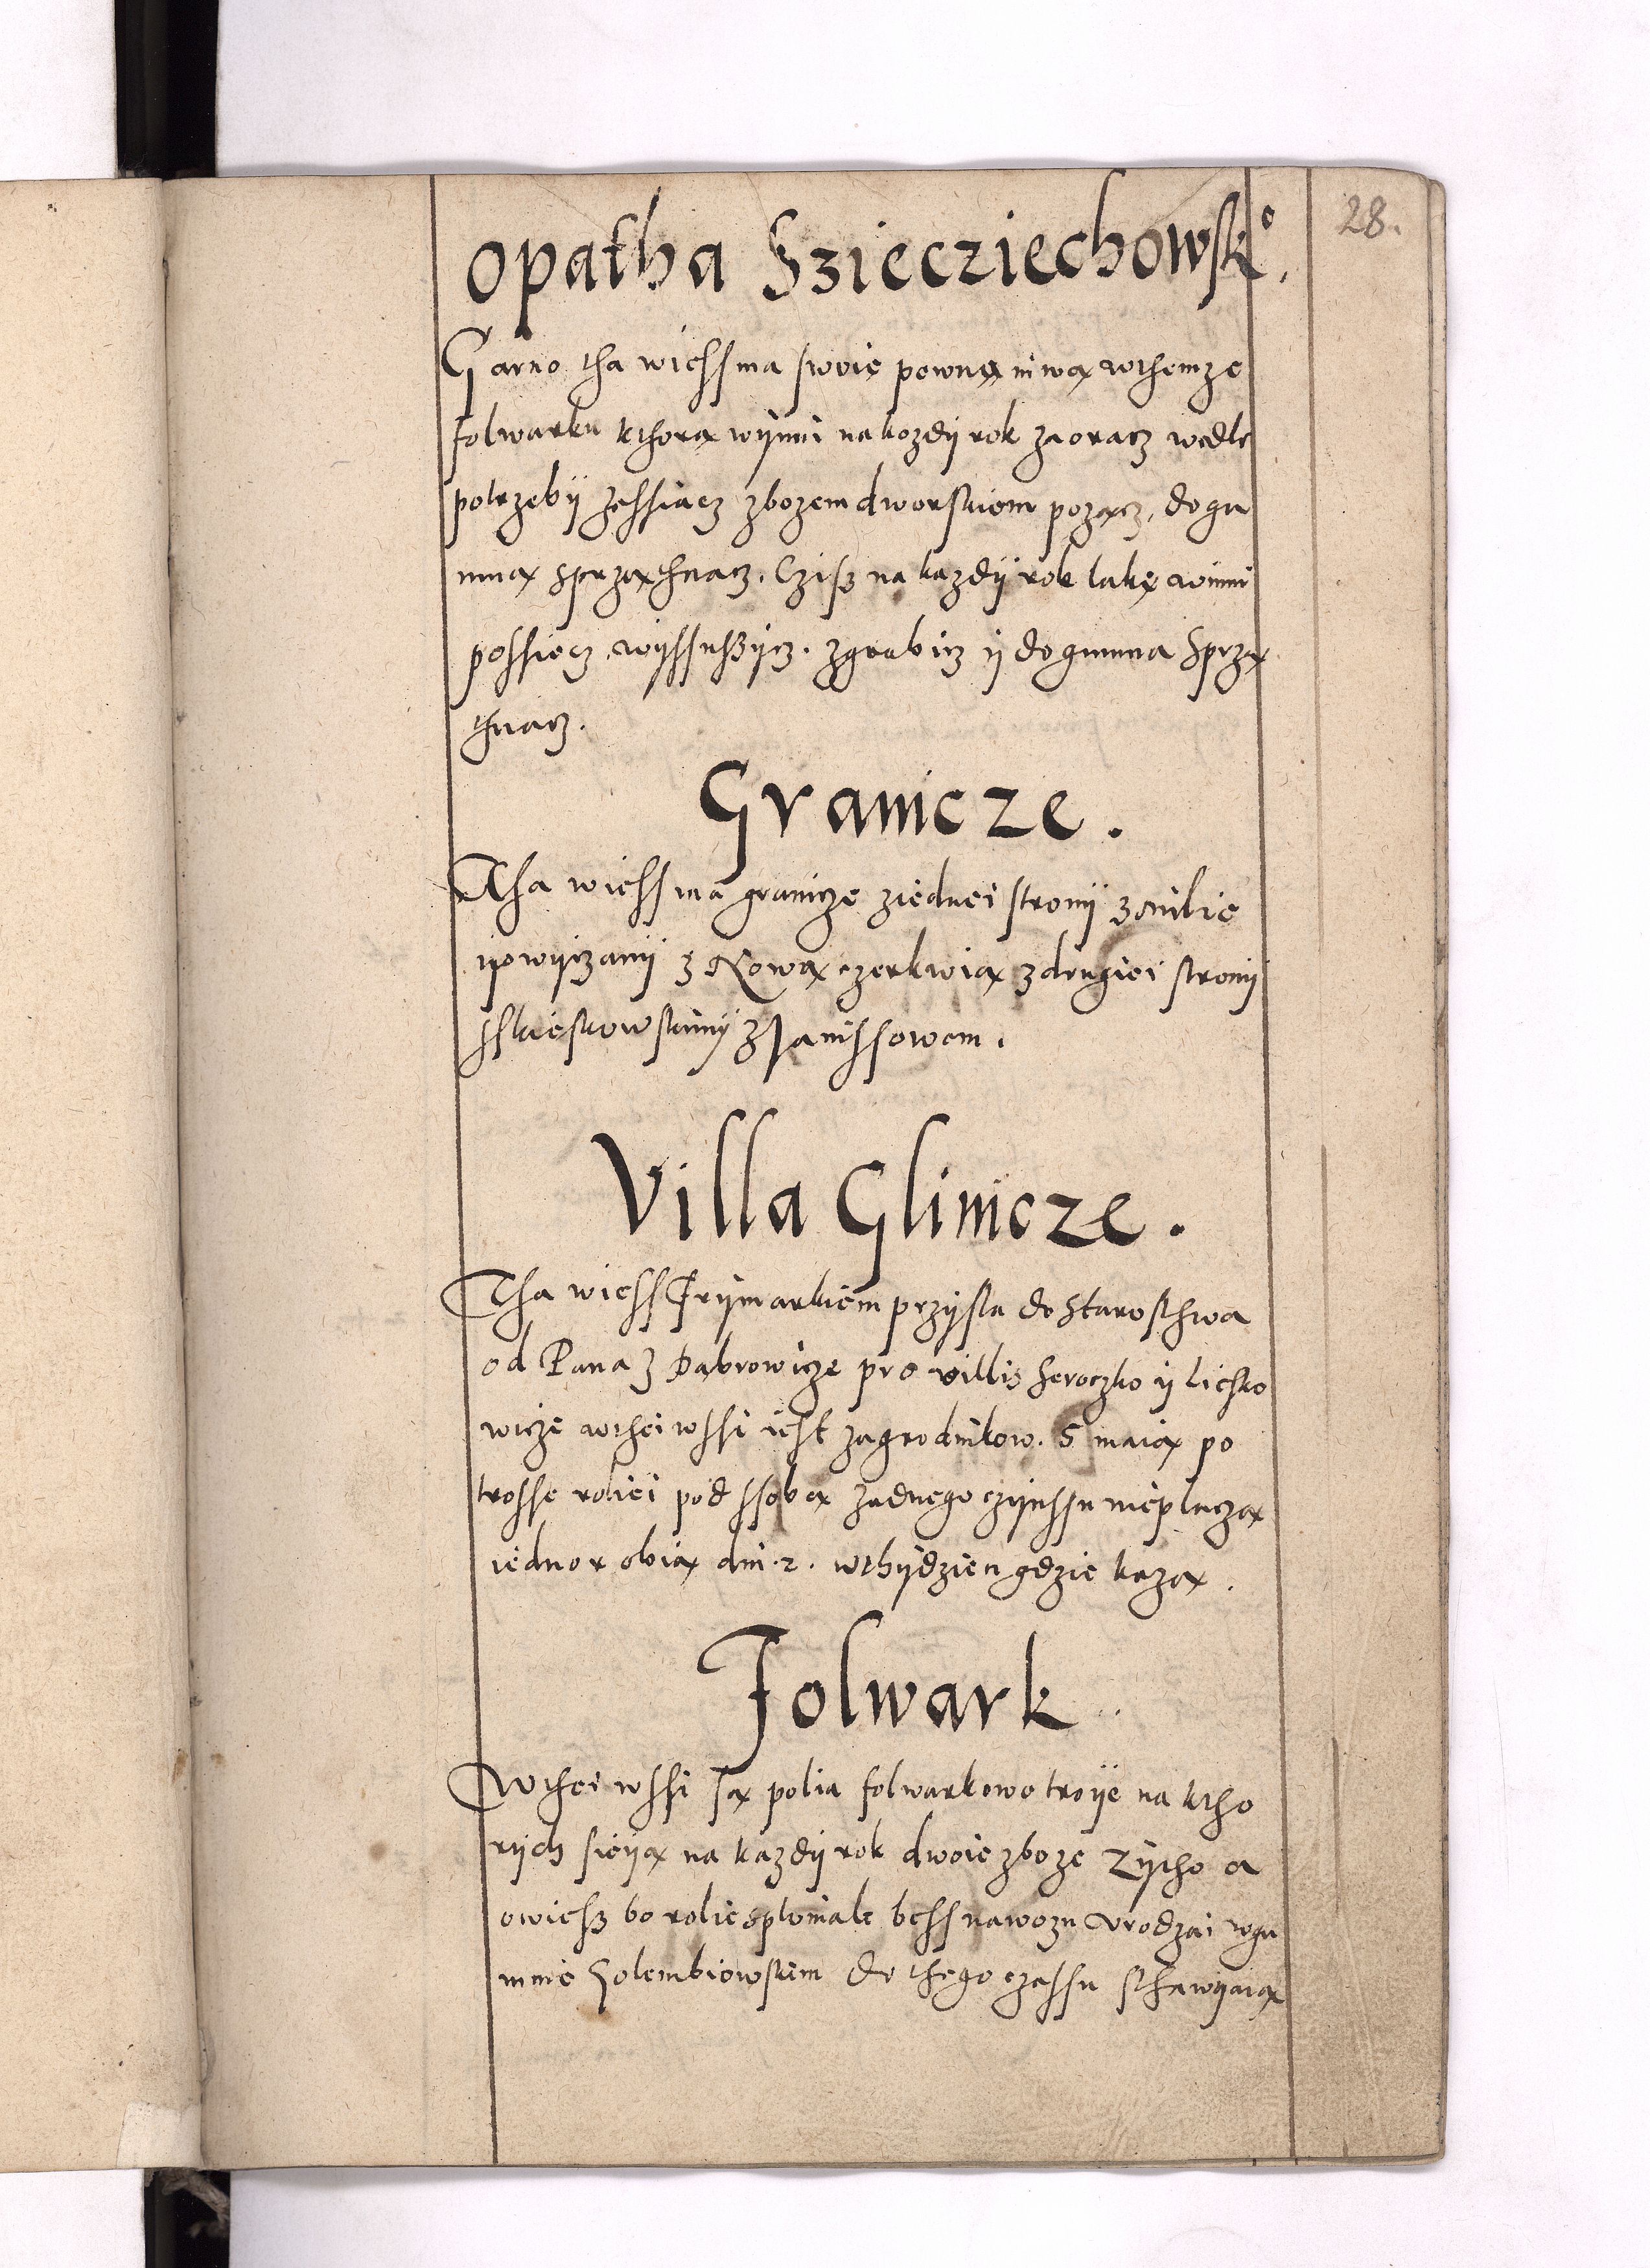 28.
opatha Sziecziechowsk°.
Garno tha wiess ma swoie pewnę niwą wthemze
folwarku kthorą wynni na kozdy rok zaoracz wedle
potrzeby zessiacz zbozem dworskiem pozącz, do gu
mna sprzathnacz. Czisz na kazdy rok lakę winni
possiecz, wyssuszycz. zgrabicz y do gumna sprzą
thnacz.
Granicze.
Tha wiess ma granicze ziednei strony
z Nową czerkwią z drugiei strony
z Janissowem.
Villa Glinicze.
Tha wiess Frymarkiem przysla do Starosthwa
od Pana z Dąbrowicze pro villis Seroczko y Liesko
wicze wthei wssi iest zagrodnikow. 5 maią po
trosse roliei pod ssobą zadnego czynssu nieplaczą
iedno robią dni .2. wthydzien gdzie kazą.
Folwark
Wthei wssi są polia folwarkowe troye na ktho
rych sieyą na kazdy rok dwoie zboze Zytho a
owiesz bo rolie oploniale bess nawozu vrodzai wgu
mnie Golembiowskiem do thego czassu sthawyaią